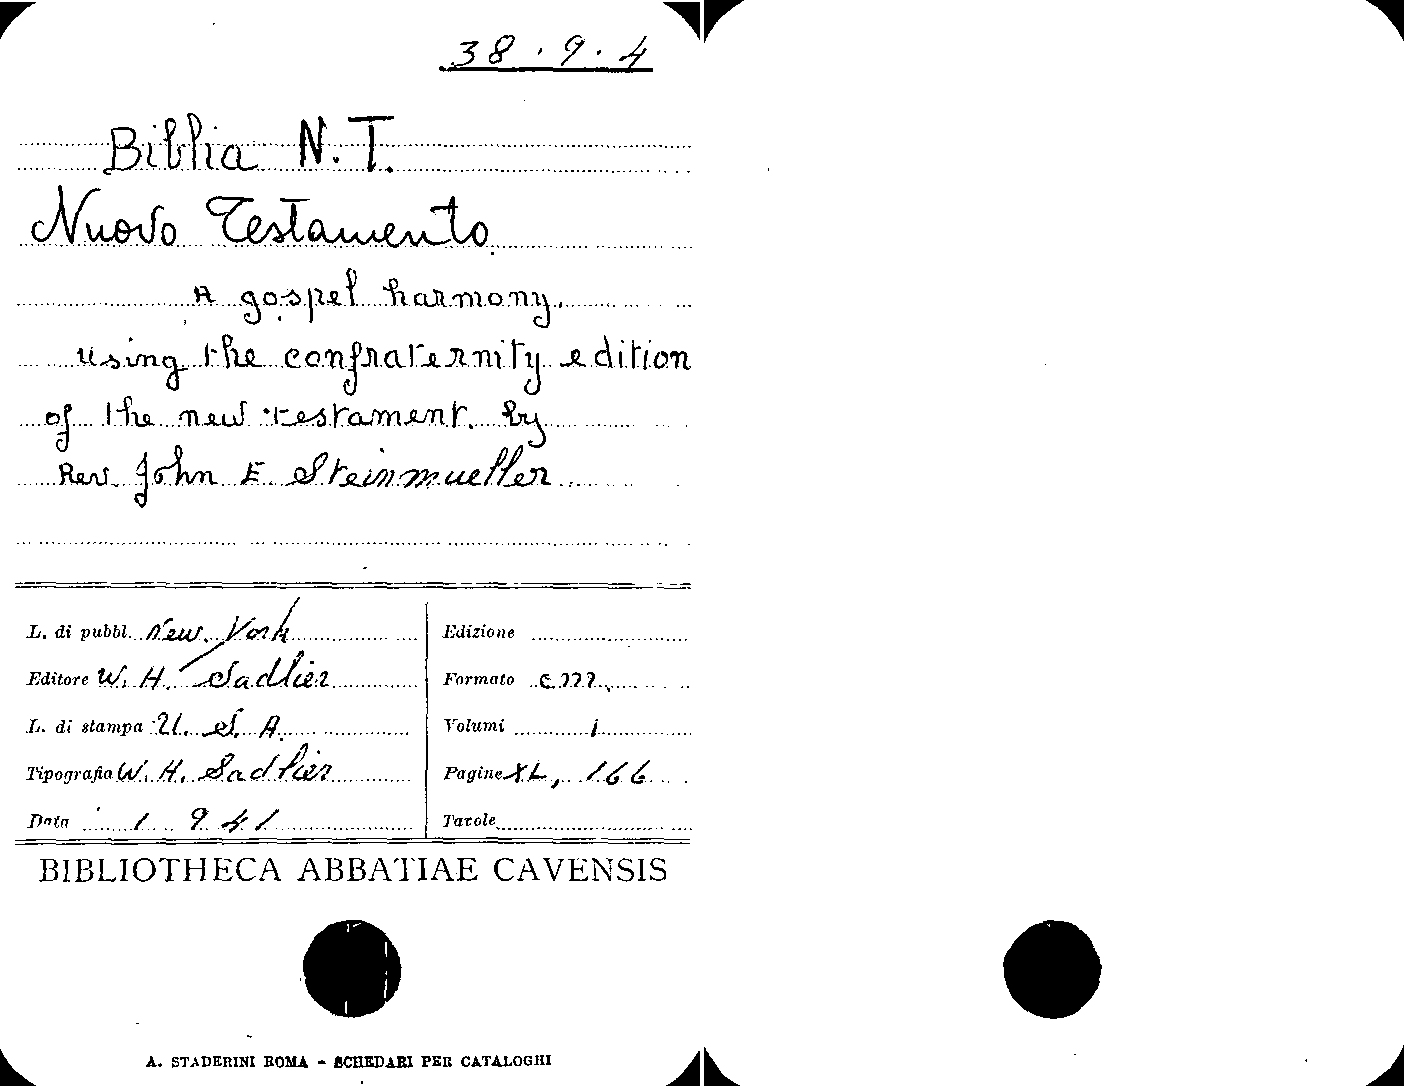 38.9.4
Biblia N.T.
Nuovo Testamento
A gospel harmony
using the confraternity edition
of the new testament. by
Rev. John E Steinmueller
L. di pubbl. New York
Editore W. H. Sadlier
L. di stampa U. S. A.
Tipografia W. H. Sadlier
Data 1941
Edizione
Formato cm.
Volumi 1
Pagine XL, 166
Tavole
BIBLIOTHECA ABBATIAE CAVENSIS
A. STADERINI ROMA - SCHEDARI PER CATALOGHI